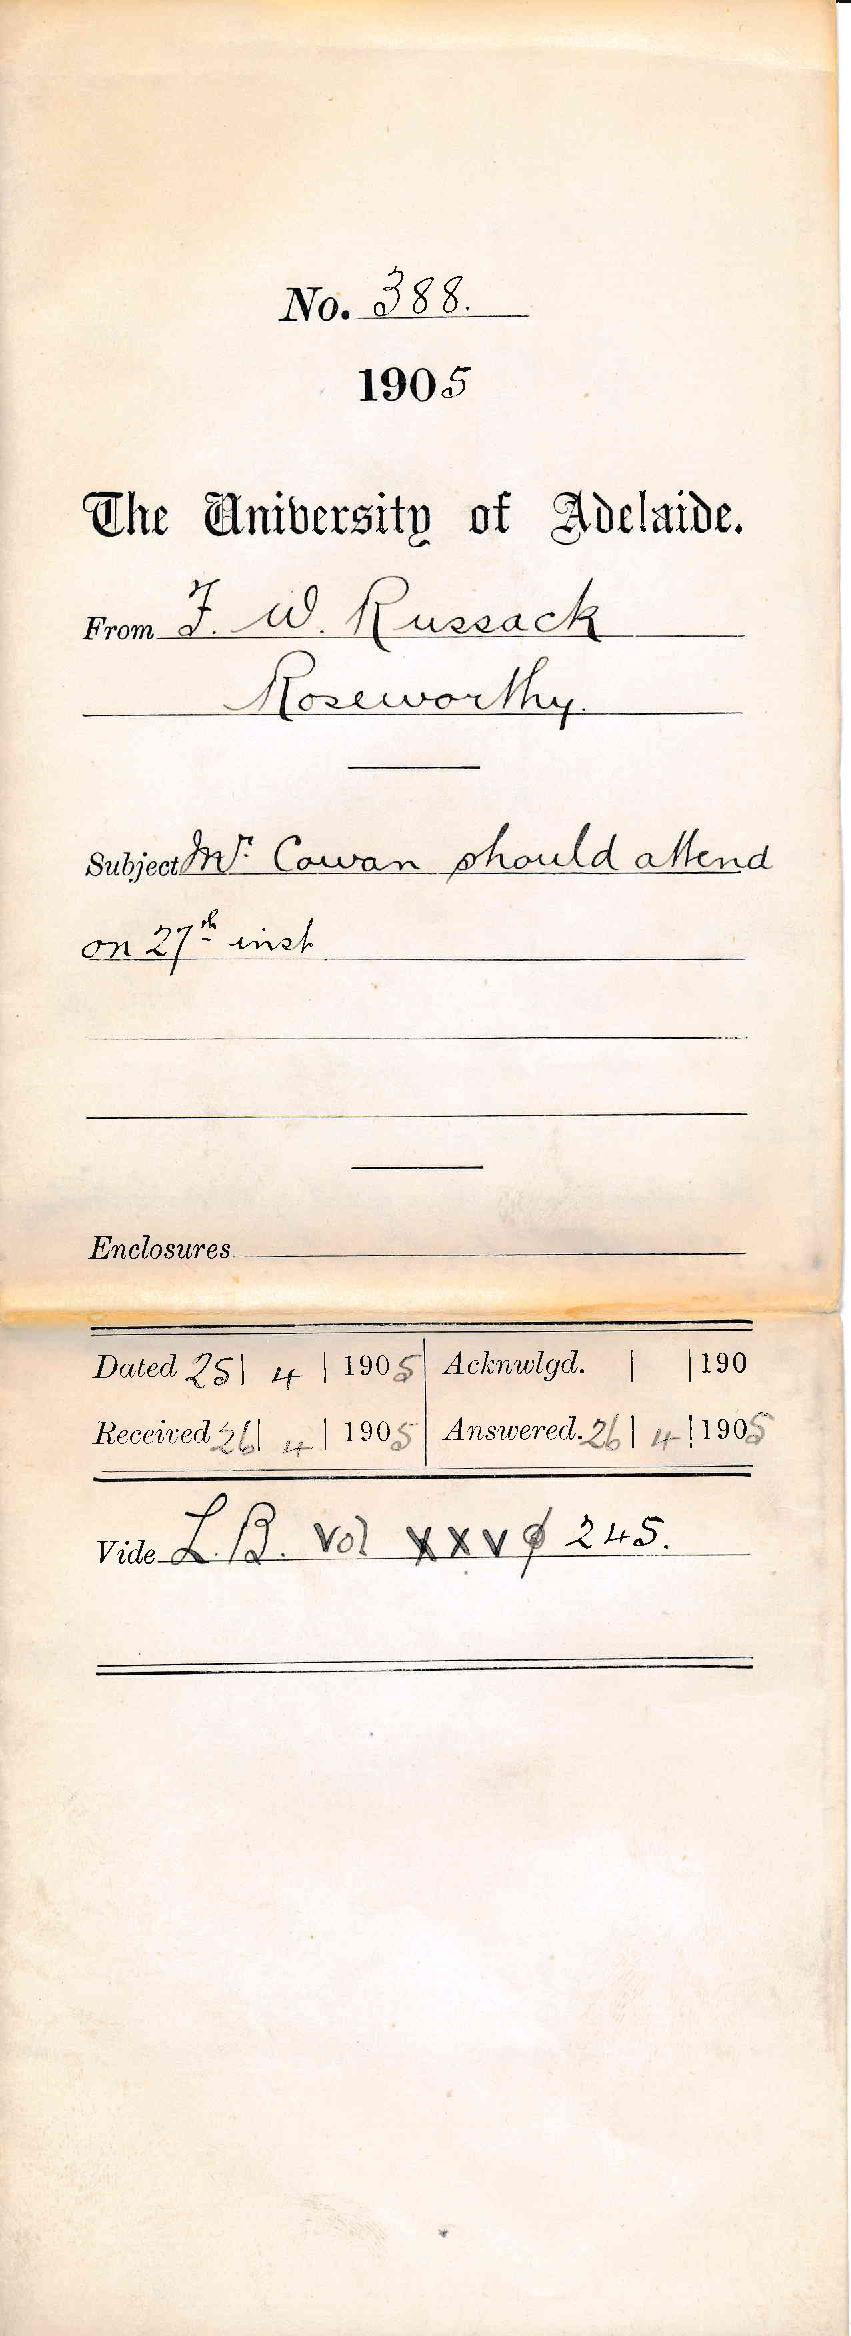 No. 388.
1905
The University of Adelaide.
From F. W. Russack
Roseworthy.
Subject Mr. Cowan should attend
on 27th inst
Enclosures
Dated 25 | 4 | 1905 Acknwlgd. | | 190
Received 26 | 4 | 1905 Answered. 26 | 4 | 1905
Vide L.B. vol XXV p 245.